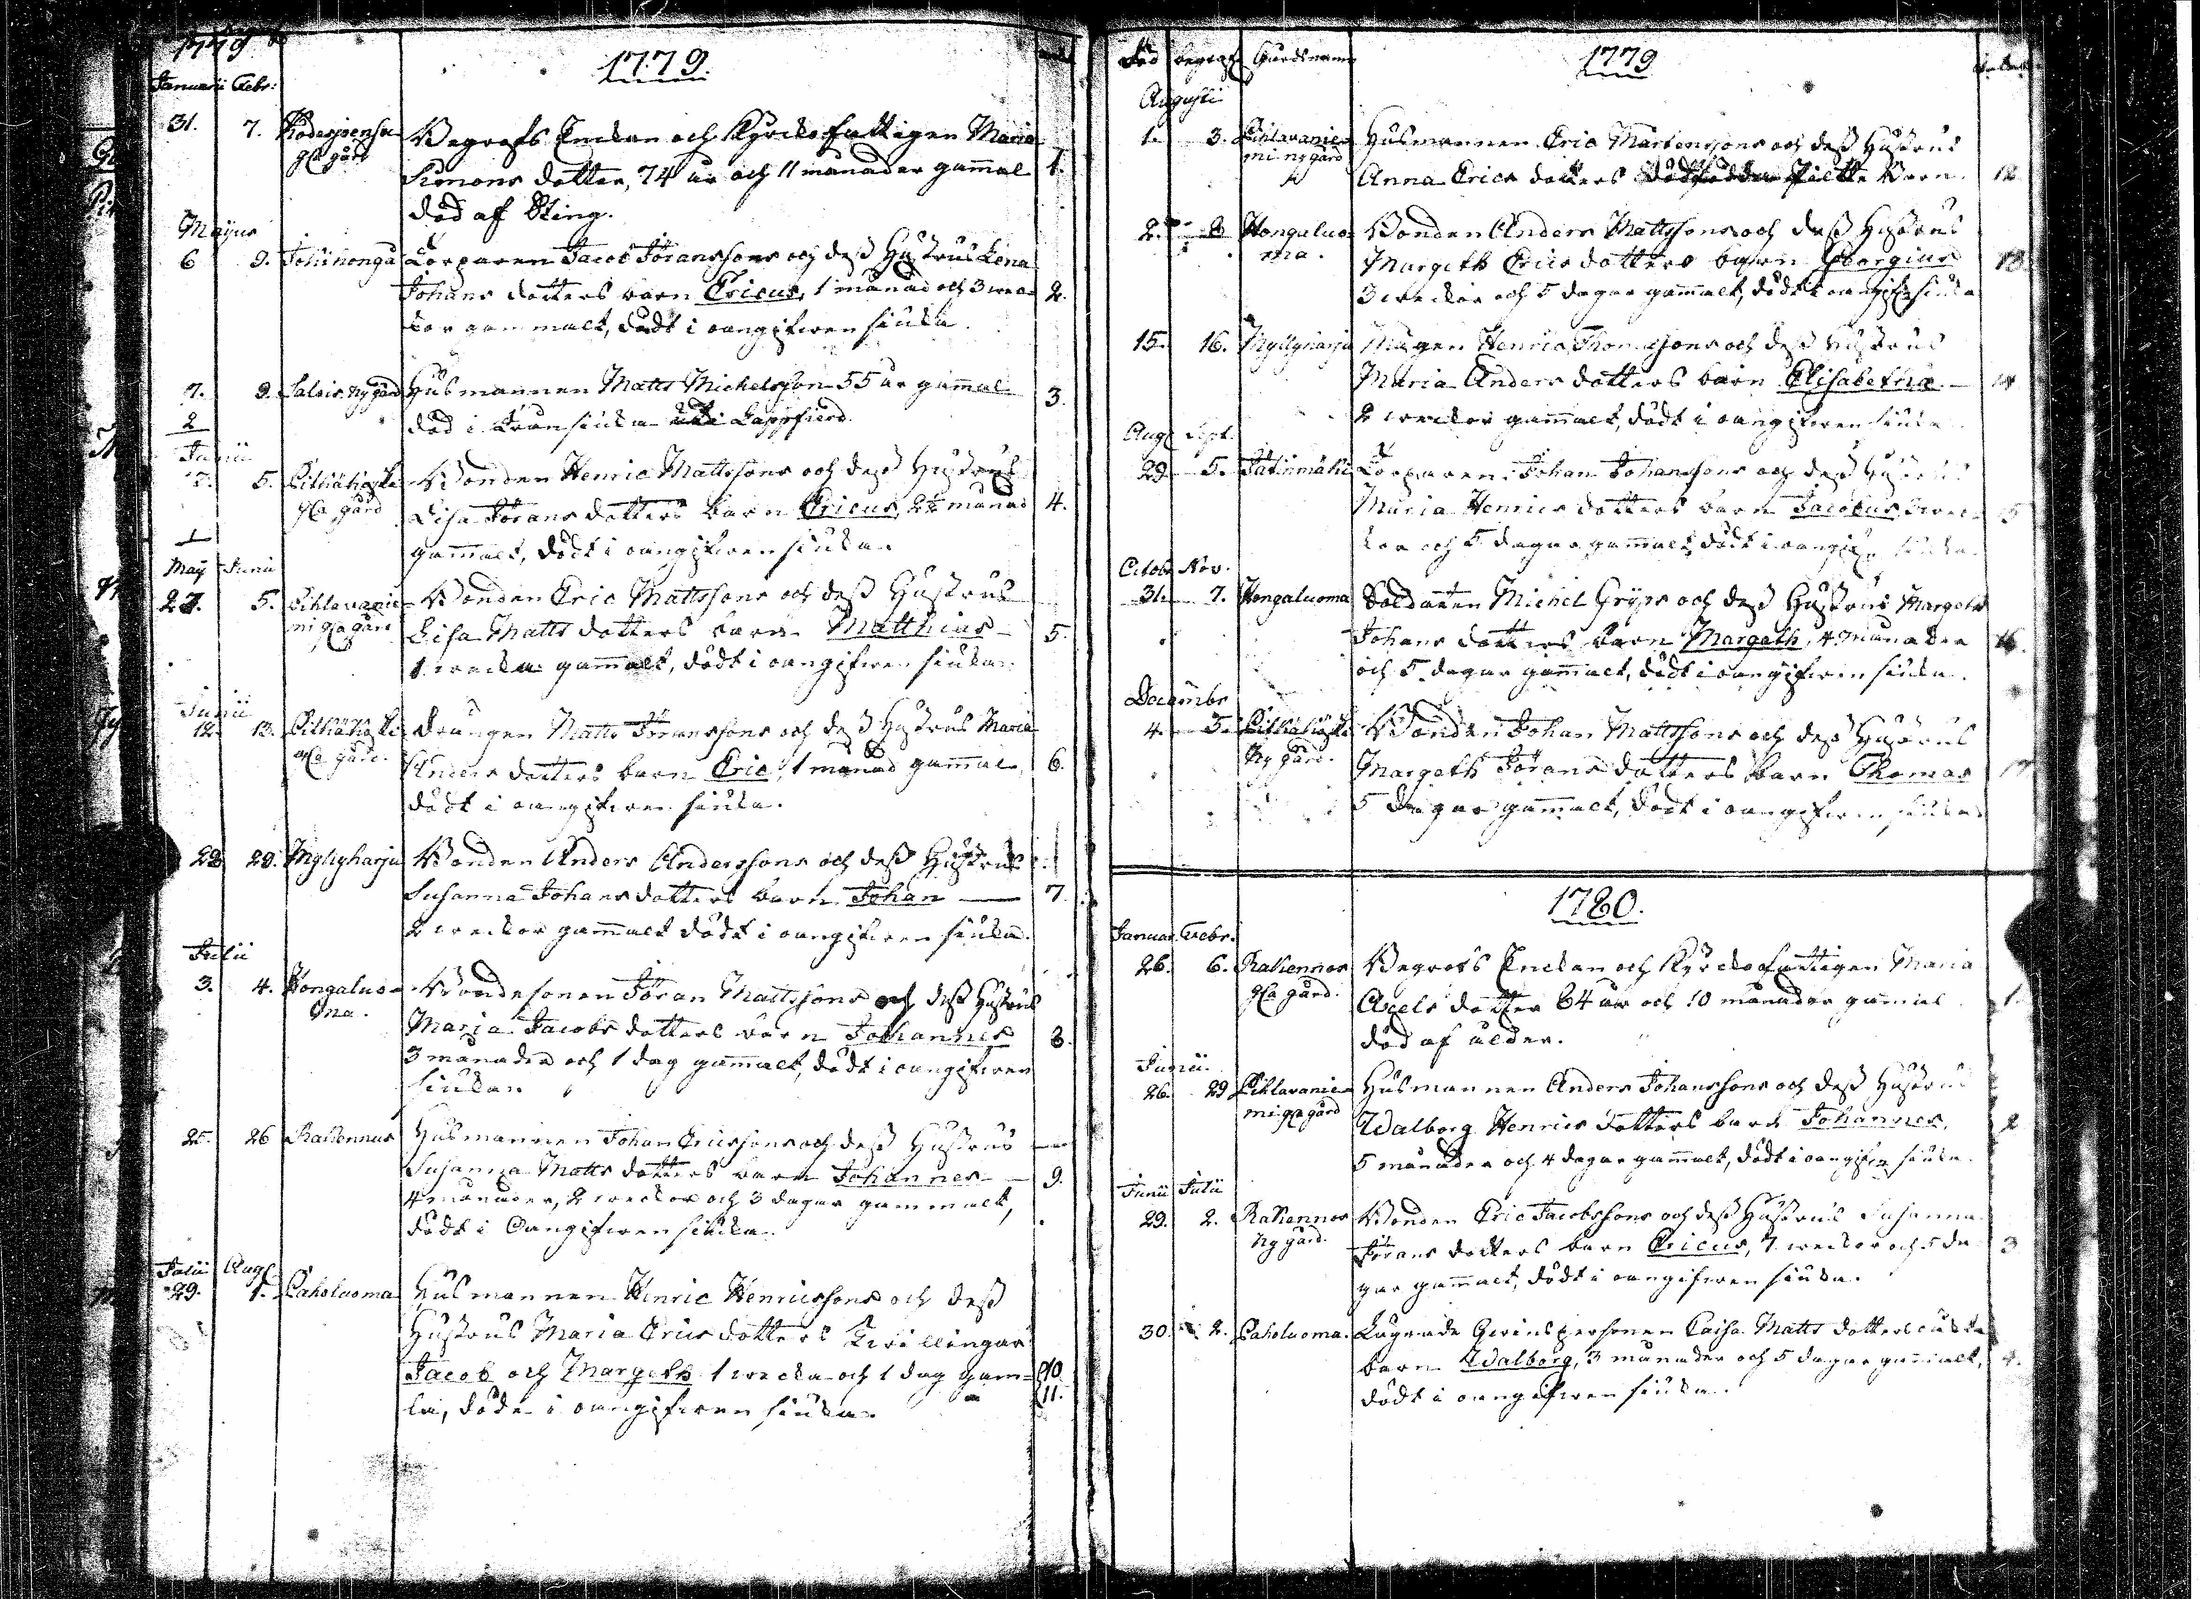 1779
1779.
Januarii Febr:
31. 7. Begrofs Enckan och Kyrckofattigen Maria
gla gård
Simons dotter, 74 år och 11 månader gammal 1.
död af Sting.
Majus
6 9. Torparen Jacob Jöranssons och dess Hustrus Lena
Johans dotters barn Ericus, 1 månad och 3 wec= 2.
kor gammalt, dödt i oangifwen siuka.
7. 9. Husmannen Matts Michelsson 55 år gamal 3.
död i Lappfierd.
2
Junii
5. Bonden Henric Mattssons och dess Hustrus
gla gård Lisa Jörans dotters barn Ericus, 2½ månad 4.
gammalt, dödt i oangifwen siuka.
1
Maij Junii
27. 5. Pihlavanie= Bonden Eric Mattssons och dess Hustrus
mi gla gård Lisa Matts dotters barn Matthias 5.
1 wecka gammalt, dödt i oangifwen siuka.
Junii
12. 13. Drängen Matts Jöranssons och dess Hustrus Maria
gla gård. Anders dotters barn Eric, 1 månad gammal 6.
dödt i oangifwen siuka.
28. 29. Myllyharju Bonden Anders Anderssons och dess Hustrus
Susanna Johans dotters barn Johan 7.
2 weckor gammalt dödt i oangifwen siuka.
Julii
3. 4. Hongaluo= Bondesonen Jöran Mattssons och dess Hustrus
ma. Maria Jacobs dotters barn Johannes 8.
3 månader och 1 dag gammalt, dödt i oangifwen
siuka.
25. 26 Rakennus Husmannen Johan Ericssons och dess Hustrus
Susanna Matts dotters barn Johannes 9.
4 månader, 2 weckor och 3 dagar gammalt,
dödt i Oangifwen siuka.
Julii Aug:
29. 1. Paholuoma Husmannen Henric Henricssons och dess
Hustrus Maria Erics dotters Twillingar
Jacob och Margeth 1 wecka och 1 dag gam= 10.
la, döde i oangifwen siuka. 11.
Död begrof: Gårdsnamn 1779
Augusti
1. 3. Pihlavanie= Husmannen Eric Mårtenssons och dess Hustrus
mi ny gård Anna Erics dotters dödfödda Barn. 12
2. 8 Hongaluo= Bonden Anders Mattssons och dess Hustrus
ma. Margeth Erics dotters barn Georgius 13.
3 weckor och 5 dagar gammalt, dödt i oangif: siuka
15. 16. Myllyharju Henric Thomessons och dess Hustrus
Maria Anders dotters barn Elisabetha 14
2 weckor gammalt, dödt i oangifwen siuka.
Aug: Sept.
29. 5. Torparen Johan Johanssons och dess Hustrus
Maria Henrics dotters barn Jacobus, 3 wec=
kor och 5 dagar gammalt, dödt i oangif: siuka.
Octobr Nov.
31. 7. Hongaluoma Soldaten Michel Gryps och dess Hustrus Margeth
Johans dotters barn Margeth, 4 månader 16.
och 5 dagar gammalt, dödt i oangifwen siuka.
Decembr
4. 5. Bonden Johan Mattssons och dess Hustrus
Ny gård. Margeth Jörans dotters barn Thomas 17
5 dagar gammalt, dödt i oangifwen siuka
1780.
Januar. Febr:
26. 6. Rakennos Begrofs Enckan och Kyrckofattigen Maria
gla gård. Axels dotter 84 år och 10 månader gamal 1.
död af ålder.
Junii
26. 29 Pihlavanie= Husmannen Anders Johanssons och dess Hustrus
mi gla gård Walborg Henrics dotters barn Johannes, 2
5 månader och 4 dagar gammalt, dödt i oangifn siuka.
Junii Julii
29. 2. Rakennos Bonden Eric Jacobssons och dess Hustrus Susanna
Ny gård. Jörans dotters barn Ericus, 7 weckor och 5 da= 3
gar gammalt, dödt i oangifwen siuka.
30. 2. Paholuoma. Qwinspersonen Caisa Matts dotters
barn Walborg, 3 månader och 5 dagar gammalt, 4.
dödt i oangifwen siuka.